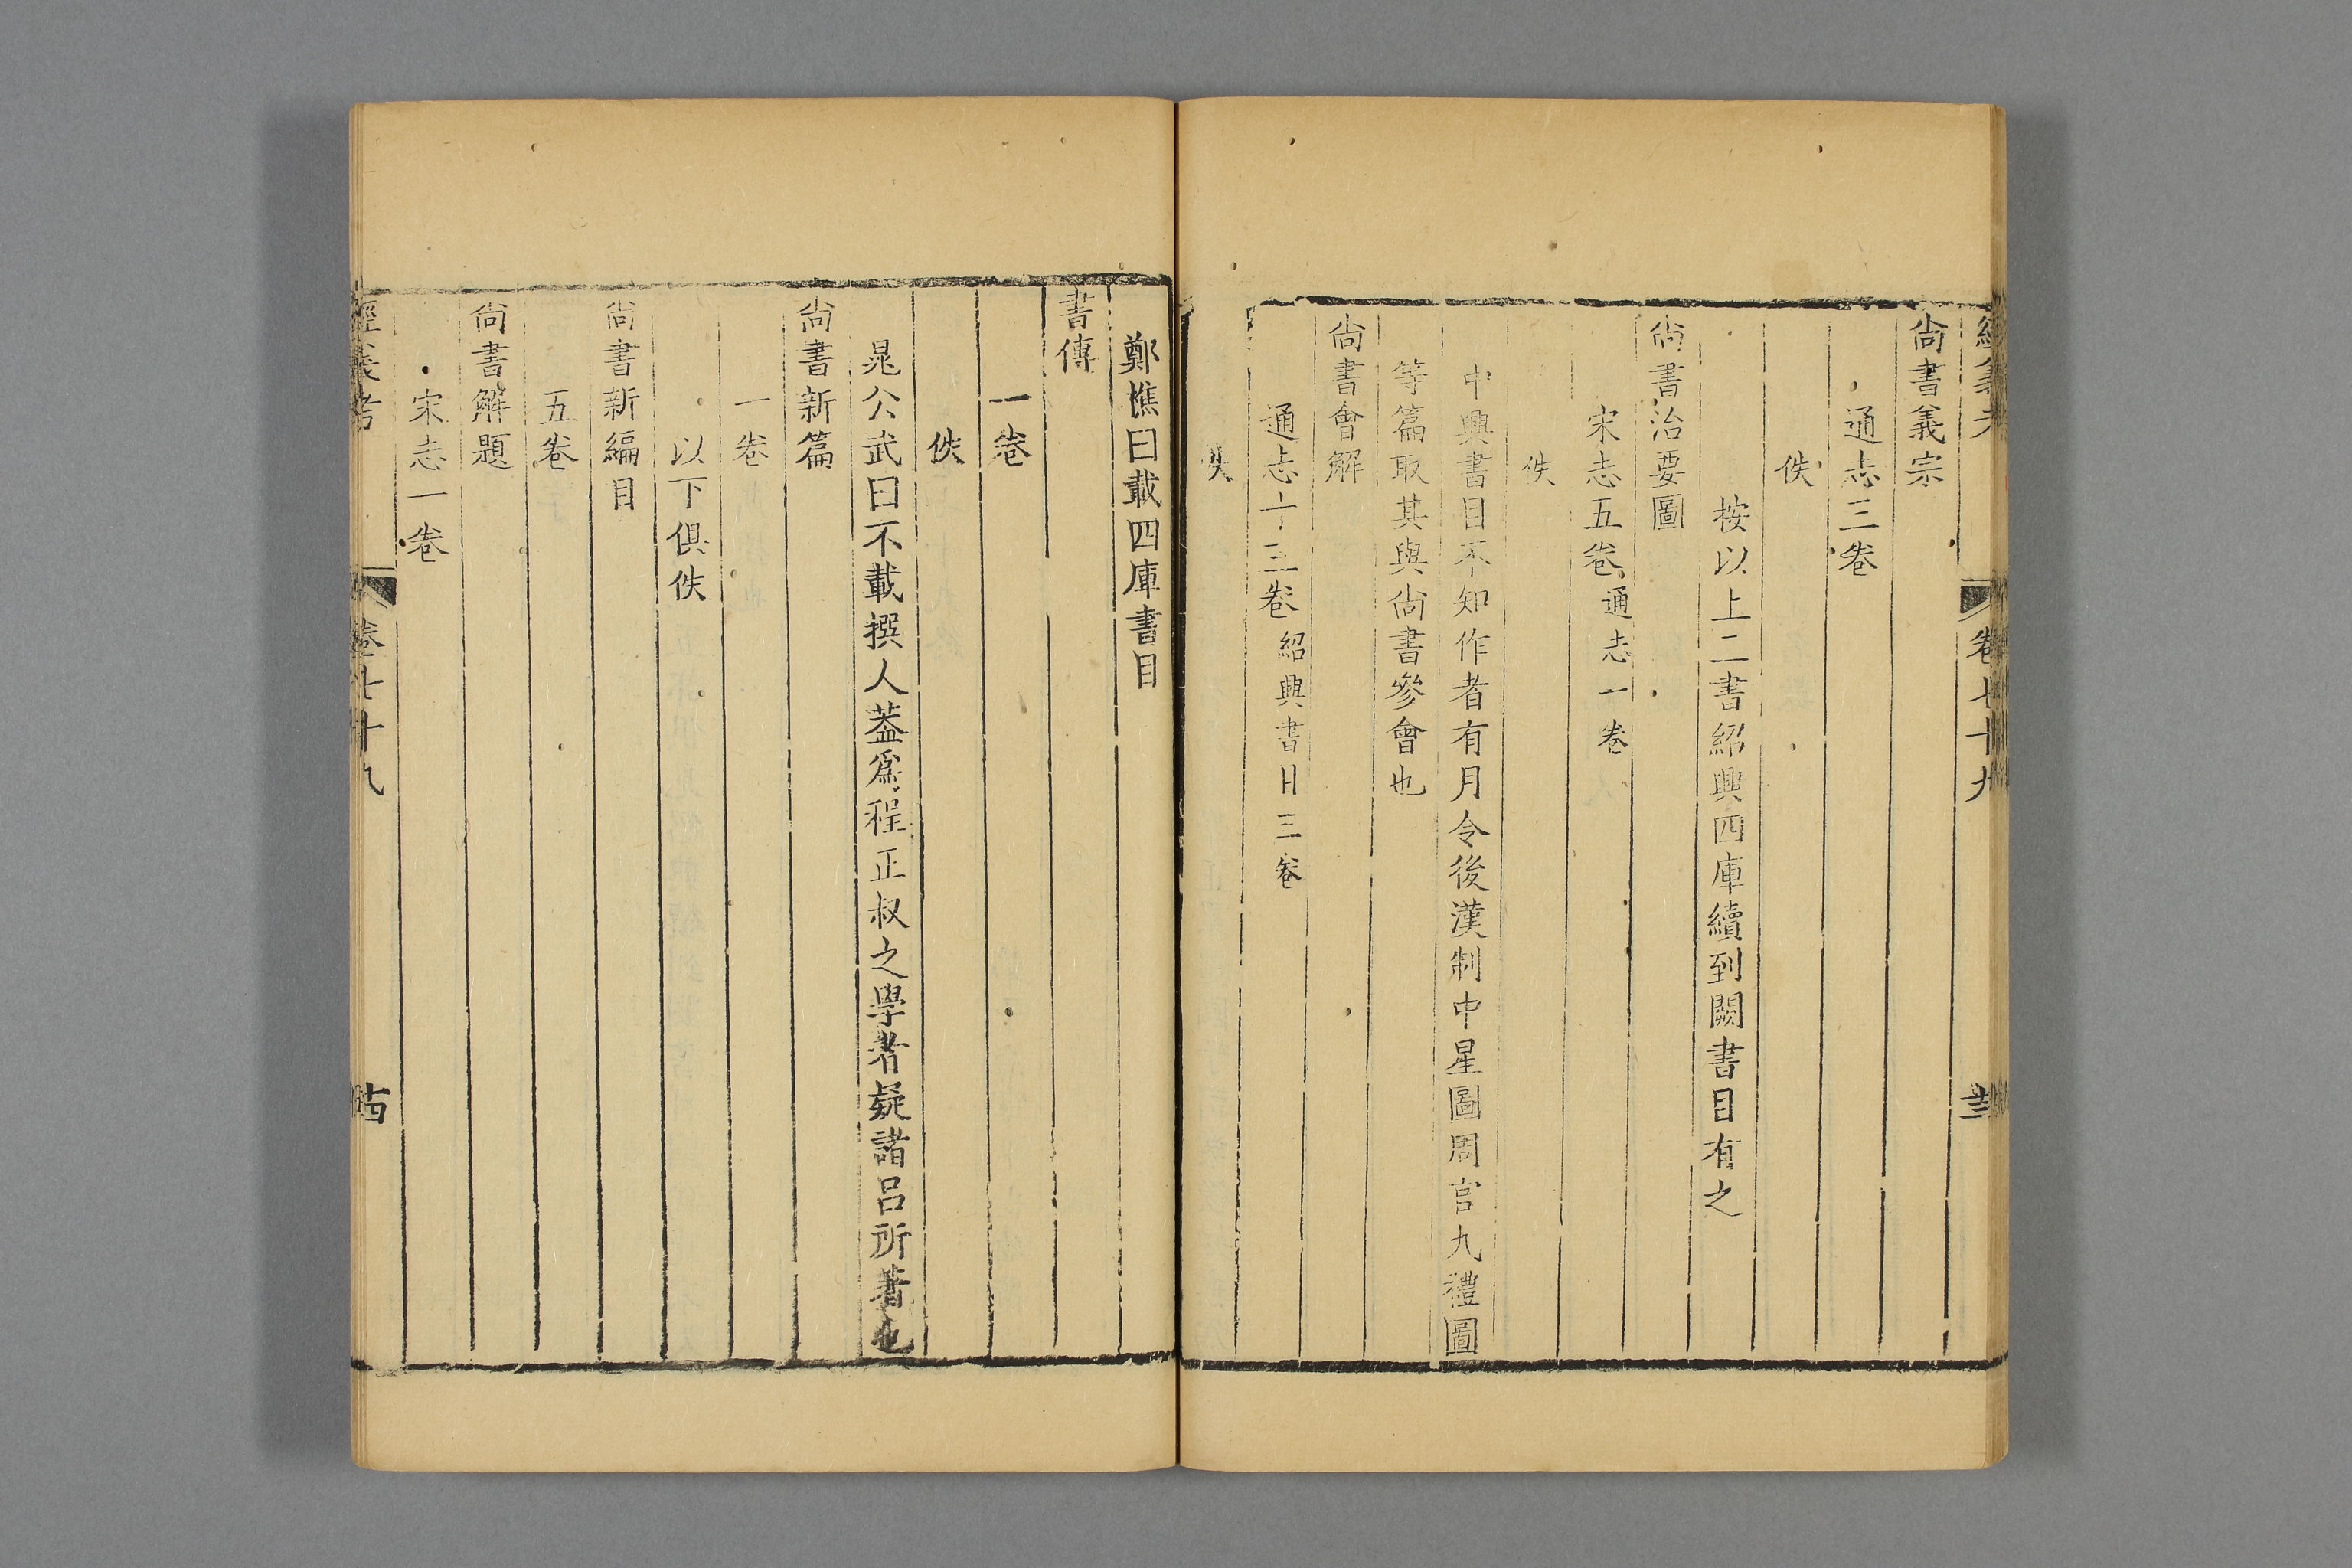 經義考 卷七十九
尚書義宗
通志三卷
佚
按以上二書紹興四庫續到闕書目有之
尚書治要圖
宋志五卷通志一卷
佚
中興書目不知作者有月令後漢制中星圖周官九禮圖
等篇取其與尚書參會也
尚書會解
通志十三卷紹興書目三卷
佚
鄭樵曰載四庫書目
書傳
一卷
佚
晁公武曰不載撰人葢爲程正叔之學者疑諸呂所著也
尚書新篇
一卷
以下俱佚
尚書新編目
五卷
尚書解題
宋志一卷
經義考 卷七十九